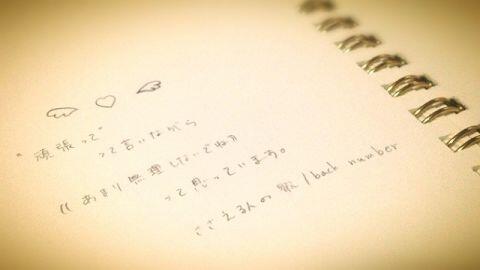 "頑張って"
って言いながら
((あまり無理しないでね))
って思っています。
ささえる人の歌/back number